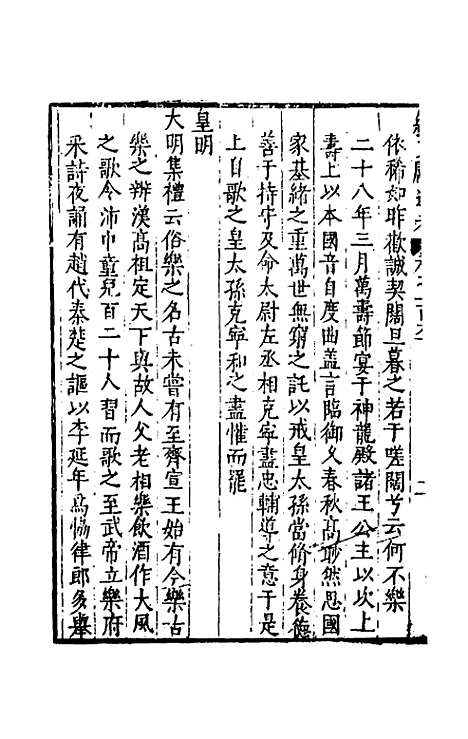 依稀如昨歡誠契闊旦暮之若于嗟闊兮云何不樂
二十八年三月萬壽節宴于神龍殿諸王公主以次上
壽上以本國音自度曲盖言臨御乆春秋髙渺然思國
家基緒之重萬世無窮之託以戒皇太孫當脩身養德
善于持守及命太尉左丞相克寧盡忠輔導之意于是
上自歌之皇太孫克寧和之盡懽而罷
皇明
大明集禮云俗樂之名古未嘗有至齊宣王始有今樂古
樂之辨漢髙祖定天下與故人父老相樂飲酒作大風
之歌令沛中童兒百二十人習而歌之至武帝立樂府
采詩夜誦有趙代秦楚之謳以李延年爲恊律郎多舉